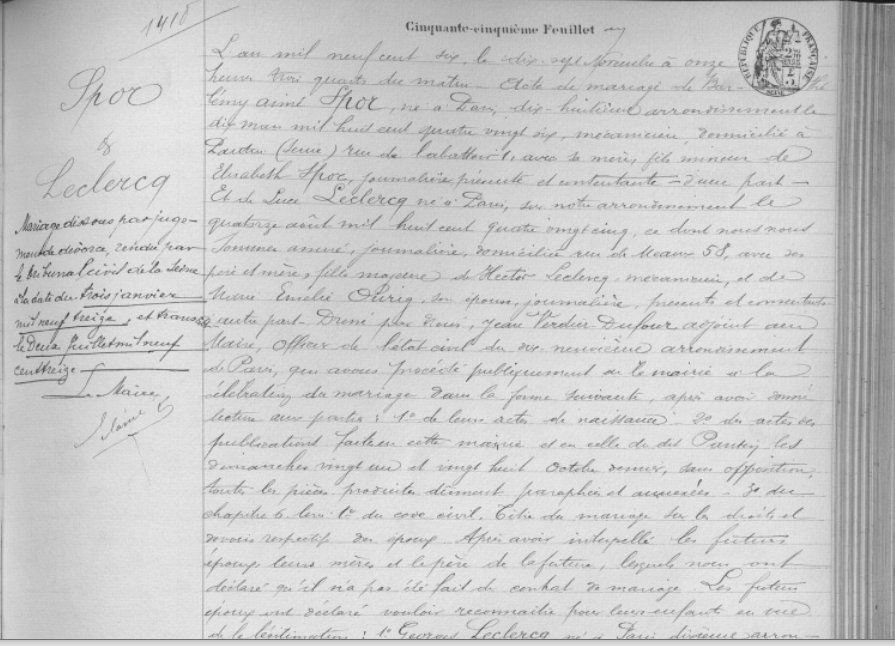 1418
Cinquante-cinquième Feuillet
RÉPUBLIQUE FRANÇAISE
Spor
&
Leclercq
Mariage dissous par juge-
ment de divorce, rendu par
le Tribunal civil de la Seine
à la date du trois janvier
mil neuf treize, et transcrit
le Deux Juillet mil neuf
cent treize
Le Maire,
L'an mil neuf cent six, le dix-sept Novembre à onze
heures trois quarts du matin - Acte de mariage de Bar
lémy aimé Spor, né à Paris, dix-huitième arrondissement le
dix mars mil huit cent quatre vingt six, mécanicien, domicilié à
Pantin (Seine) rue de l'abattoir 1, avec sa mère, fils mineur de
Elisabeth Spor, journalière, présente et consentante - d'une part -
Et de Luce Leclercq née à Paris, sur notre arrondissement le
quatorze août mil huit cent quatre vingt cinq, ce dont nous nous
sommes assuré, journalière, domiciliée rue de Meaux 58, avec ses
père et mère, fille majeure de Hector Leclercq, mécanicien, et de
Marie Emélie son épouse, journalière, présents et consentants
d'autre part - Dressé par nous, Jean Verdier-Dufour adjoint au
Maire, Officier de l'état civil du dix-neuvième arrondissement
de Paris, qui avons procédé publiquement en la mairie à la
célébration du mariage dans la forme suivante, après avoir donné
lecture aux parties : 1º de leurs actes de naissance - 2º des actes des
publications faites en cette mairie et en celle du dit Pantin les
dimanches vingt un et vingt huit Octobre dernier, sans opposition,
toutes les pièces produites dûment paraphées et annexées - 3º du
chapitre 6 livre 1º du code civil, Titre du mariage sur les droits et
devoirs respectifs des époux. Après avoir interpellé les futurs
époux leurs mères et le père de la future, lesquels nous ont
déclaré qu'il n'a pas été fait de contrat de mariage. Les futurs
époux ont déclaré vouloir reconnaître pour leurs enfants en vue
de la légitimation : 1º Georges Leclercq né à Paris dixième arron-